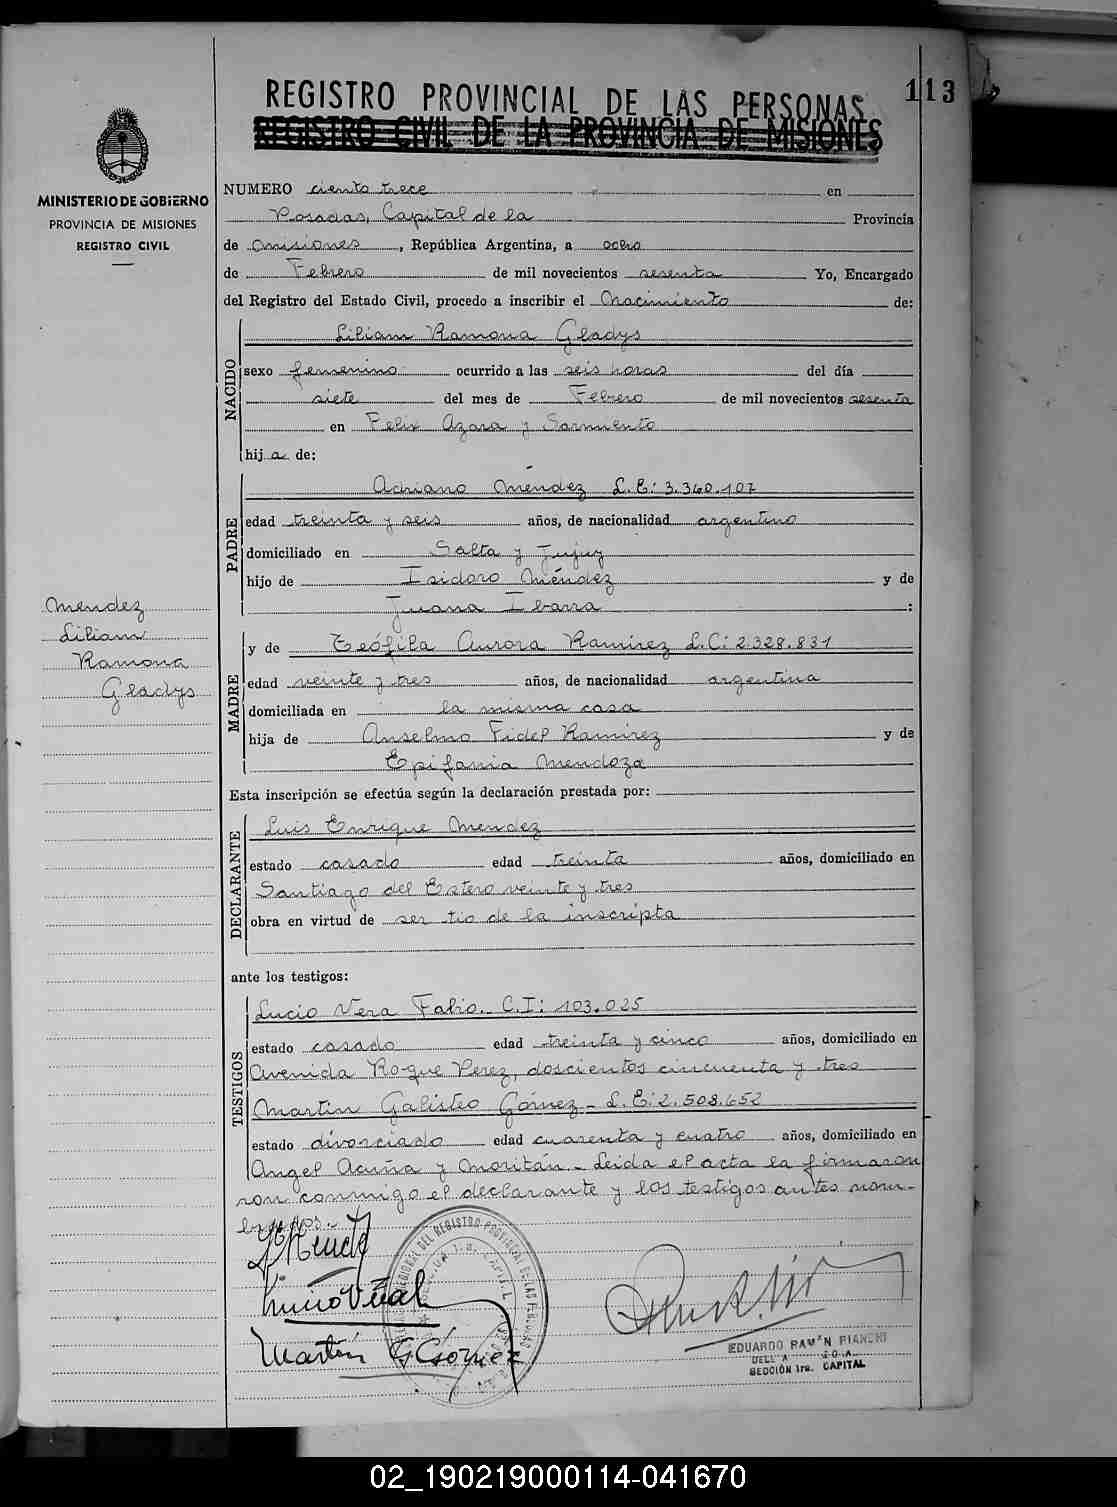 REGISTRO PROVINCIAL DE LAS PERSONAS
113
REGISTRO CIVIL DE LA PROVINCIA DE MISIONES
MINISTERIO DE GOBIERNO
PROVINCIA DE MISIONES
REGISTRO CIVIL
NUMERO ciento trece en
Posadas, Capital de la Provincia
de Misiones, República Argentina, a ocho
de Febrero de mil novecientos sesenta Yo, Encargado
del Registro del Estado Civil, procedo a inscribir el Nacimiento de:
NACIDO
Liliam Ramona Gladys
sexo femenino ocurrido a las seis horas del día
siete del mes de Febrero de mil novecientos sesenta
en Felix Azara y Sarmiento
hija de:
PADRE
Adriano Méndez L.E: 3.340.107
edad treinta y seis años, de nacionalidad argentino
domiciliado en Salta y Jujuy
hijo de Isidoro Méndez y de
Juana Ibarra :
Mendez
Liliam
Ramona
Gladys
MADRE
y de Teófila Aurora Ramírez L.C: 2.328.831
edad veinte y tres años, de nacionalidad argentina
domiciliada en la misma casa
hija de Anselmo Fidel Ramirez y de
Epifania Mendoza
Esta inscripción se efectúa según la declaración prestada por:
DECLARANTE
Luis Enrique Mendez
estado casado edad treinta años, domiciliado en
Santiago del Estero veinte y tres
obra en virtud de ser tio de la inscripta
ante los testigos:
TESTIGOS
Lucio Vera Fabio.. C.I: 103.025
estado casado edad treinta y cinco años, domiciliado en
Avenida Roque Perez, doscientos cincuenta y tres
Martin Galisteo Gómez - L.E: 2.508.652
estado divorciado edad cuarenta y cuatro años, domiciliado en
Angel Acuña y Moritán - Leida el acta la firmaron
ron conmigo el declarante y los testigos antes nom-
brados.-
Martín G Gómez
EDUARDO RAMÓN BIANCHI
SECCIÓN 1ra. CAPITAL
02_190219000114-041670